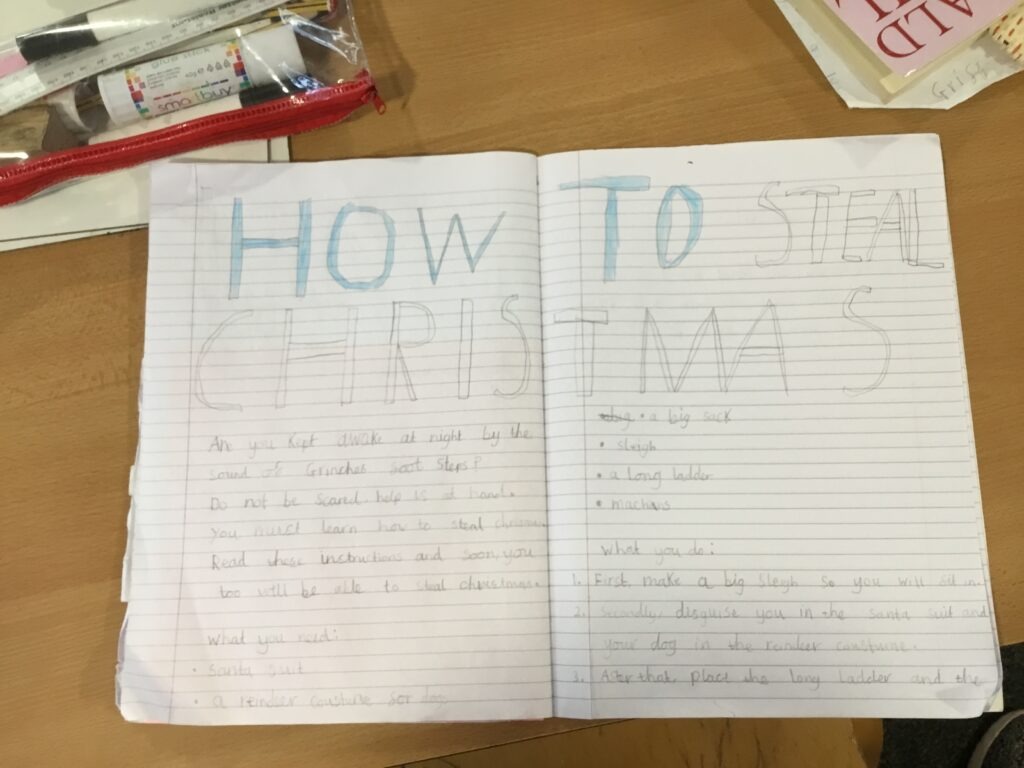 glue stick
40g e
smartbuy
ALD
Gris
HOW TO STEAL
CHRISTMAS
Are you kept awake at night by the
sound of Grinches foot steps?
Do not be scared, help is at hand.
You must learn how to steal christmas.
Read these instructions and soon, you
too will be able to steal christmas.
What you need:
• Santa suit
• a reindeer constume for dog
big • a big sack
• sleigh
• a long ladder
• machins
What you do:
1. First, make a big sleigh so you will sit in.
2. Secondly, disguise you in the santa suit and
your dog in the reindeer constume.
3. After that, place the long ladder and the